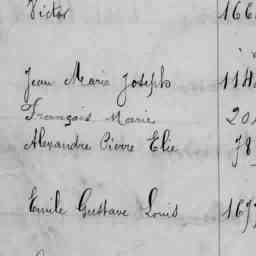 Victor 166
Jean Marie Joseph 114
François Marie 20
Alexandre Pierre Elie 78
Emile Gustave Louis 167